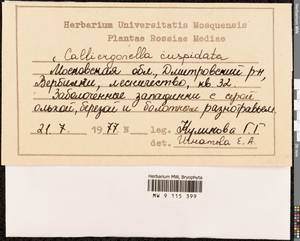 Herbarium Universitatis Mosquensis
Plantae Rossiae Mediae
Calliergonella cuspidata
Московская обл., Дмитровский р-н
Вербилки, лесничество, кв. 32
Заболоченные западинки с серой
ольхой, березой и болотным разнотравьем.
21.7. 1977 г. leg. Куликова Г.Г.
det. Игнатова Е.А.
Herbarium MW, Bryophyta
MW 9 115 399